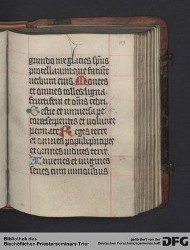 grando nix glacies spūs
procellarum que faciūt
verbum eius Montes
et omnes colles ligna
fructifera et om̄s cedri
Bestie et universa pe
cora serpentes et volucres
pennate Reges terre
et omnes populi principes
et omnes iudices terre
Iuvenes et virgines
senes cum iunioribus
Bibliothek des
Bischöflichen Priesterseminars Trier
gefördert von der
Deutschen Forschungsgemeinschaft
DFG